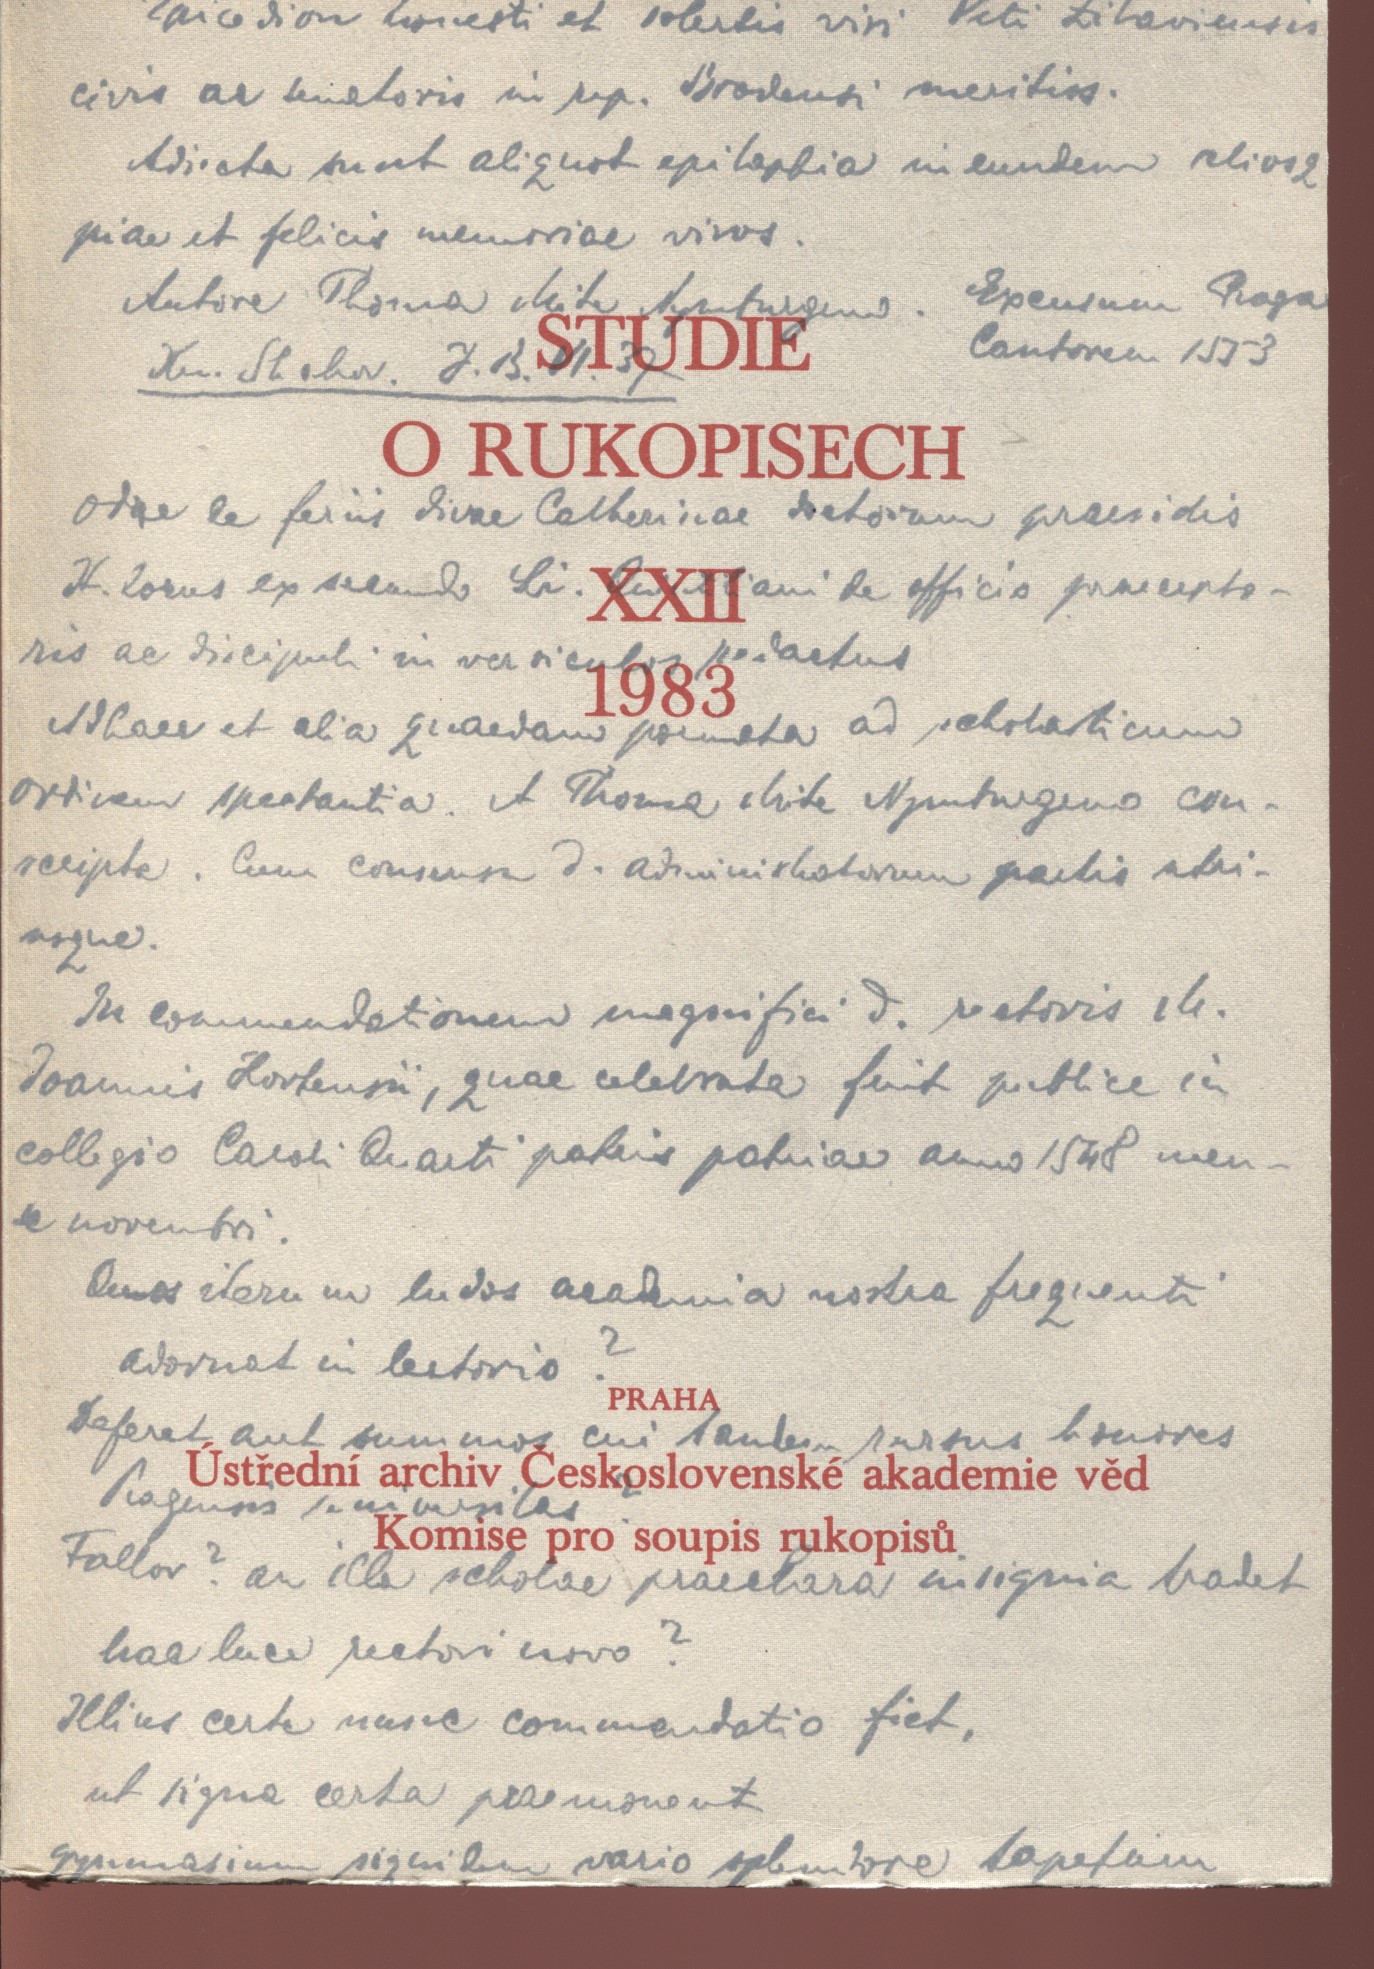 Epicedion honesti et solertis viri Viti Litaviensis
civis ac senatoris in rep. Brodensi meritiss.
Adiecta sunt aliquot epitaphia in eundem aliosq
piae et felicis memoriae viros.
Autore Thoma Mite Nymburgeno. Excusum Praga
Cantorem 1553
Kn. Strahov.
STUDIE
O RUKOPISECH
Odae de feriis divae Catherinae doctorum praesidis
XXII
H. Locus ex secundo Li. Quintiliani de officio praecepto-
ris ac discipuli in versiculos redactus
1983
Adhaec et alia quaedam poemata ad scholasticum
ordinem spectantia. A Thoma Mite Nymburgeno con-
scripta. Cum consensu d. administratorum partis utri-
usque.
In commendationem magnifici d. rectoris M.
Joannis Hortensii, quae celebrata fuit publice in
collegio Caroli Quarti patris patriae anno 1548 men-
se novembri.
Quos iterum ludos academia nostra frequenti
adornat in lectorio?
PRAHA
Deferet aut summos cui tandem rursus honores
Ústřední archiv Československé akademie věd
Pragensis universitas?
Komise pro soupis rukopisů
Fallor? an illa scholae praeclara insignia tradet
hac luce rectori novo?
Illius certe nunc commendatio fiet,
ut signa certa praemonent
gymnasium siquidem vario splendore tapetum